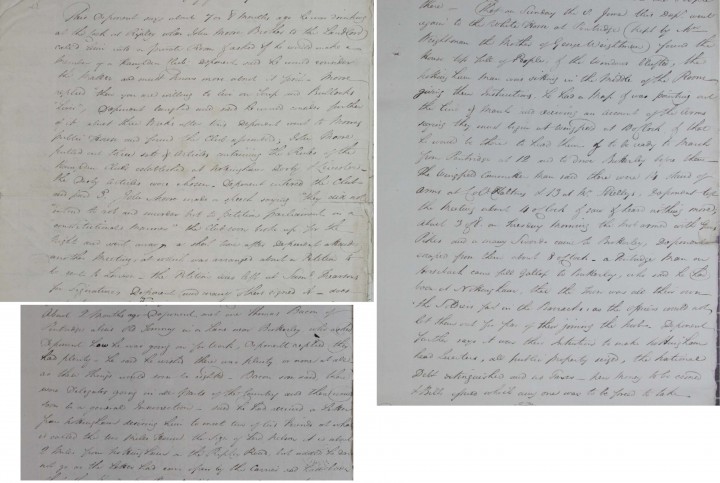 This Deponent says about 7 or 8 Months ago he was smoking
at the Cock at Ripley when John Moore Brother to the Landlord
called him into a private Room & asked if he would make a
Member of a Hampden Club deponent said he would consider
the Matter and must know more about it from Moore
replied then you are willing to live on Turnip and Bullocks
Liver" Deponent laughed and said he would make further
of it about three Weeks after this Deponent went to Moores
public House and found the Club assembled, John Moore
pulled out three sets of Articles containing the Rules of the
Hampden Clubs established at Nottingham Derby & Lincoln
the Derby Articles were chosen. Deponent entered the Club
and paid John Moore make a speech saying "they did not
intend to rob and murder but to petition parliament in a
constitutional Manner" the Club soon broke up for the
Night and went away a short time after Deponent attended
another Meeting at which was arranged about a Petition to
be sent to London - the Petition was left at Saml
for Signatures Deponent and many others signed it
About 9 Months ago Deponent met one Thomas Bacon of
Pentridge in a Lane near Butterley, who asked
Deponent how he was going on for work, Deponent replied, they
had plenty. He said he wished there was plenty or none at all
as then things would come to rights - Bacon soon said, there
were Delegates going in all parts of the Country and there would
soon be a general Insurrection - said he had received a Letter
from Nottingham desiring him to meet two of his Friends at what
is called the two Miles House the Sign of Lord Nelson it is about
2 Miles from Nottingham on the Ripley Road, but added he dare
not go as the Letter had been open by the Carrier
there - That on Sunday the 8 June this Dept went
again to the White Horse at Pentridge (kept by Mrs
Weightman the Mother of George Weightman) found the
House top full of People, the Windows Shutted, the
Nottingham Man was sitting in the Middle of the Room
giving them Instructions. He had a Map & was pointing out
the Line of March and receiving an account of the Arms
saying they must begin at Wingfield at 10 o'Clock & that
he would be there to lead them & to be ready to March
from Pentridge at 12 and to drive Butterley before them
The Wingfield Committee Man said there were 14 stand of
Arms at Col Haltons & 13 at Mr Stretleys. Deponent left
the Meeting about 4 o'Clock & saw & heard nothing more
about 3 of a Tuesday Morning the Mob armed with Guns
Pikes and a many Swords came to Butterley, Deponent
escaped from them about 8 o'Clock - a Pentridge Man on
Horseback came full Gallop to Butterley, who said he had
been at Nottingham, that the Town was all their own
the Soldiers fast in the Barracks, as the officers would not
let them out for fear of their joining the Mob. Deponent
further says it was their Intention to make Nottingham
Head Quarters, all public Property seized, the National
Debt extinguished and no Taxes - new Money to be coined
& Bills issued which every one was to be forced to take -